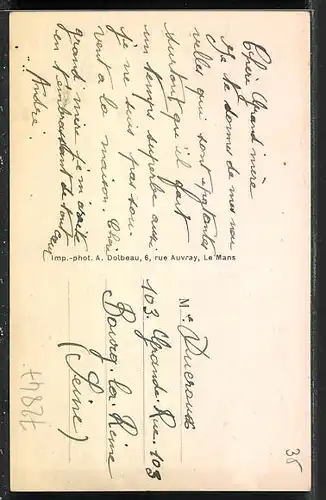 Chère Grand mère
Je te donne de mes nou
velles qui sont épatantes
surtout qu'il fait
un temps superbe aussi
je ne suis pas sou
vent à la maison. Chère
grand mère je m'arrête
en t'embrassant de tout cœur
André.
Imp.-phot. A. Dolbeau, 6, rue Auvray, Le Mans
Me Ducroux
103. Grande. Rue. 103
Bourg. la. Reine
(Seine)
38